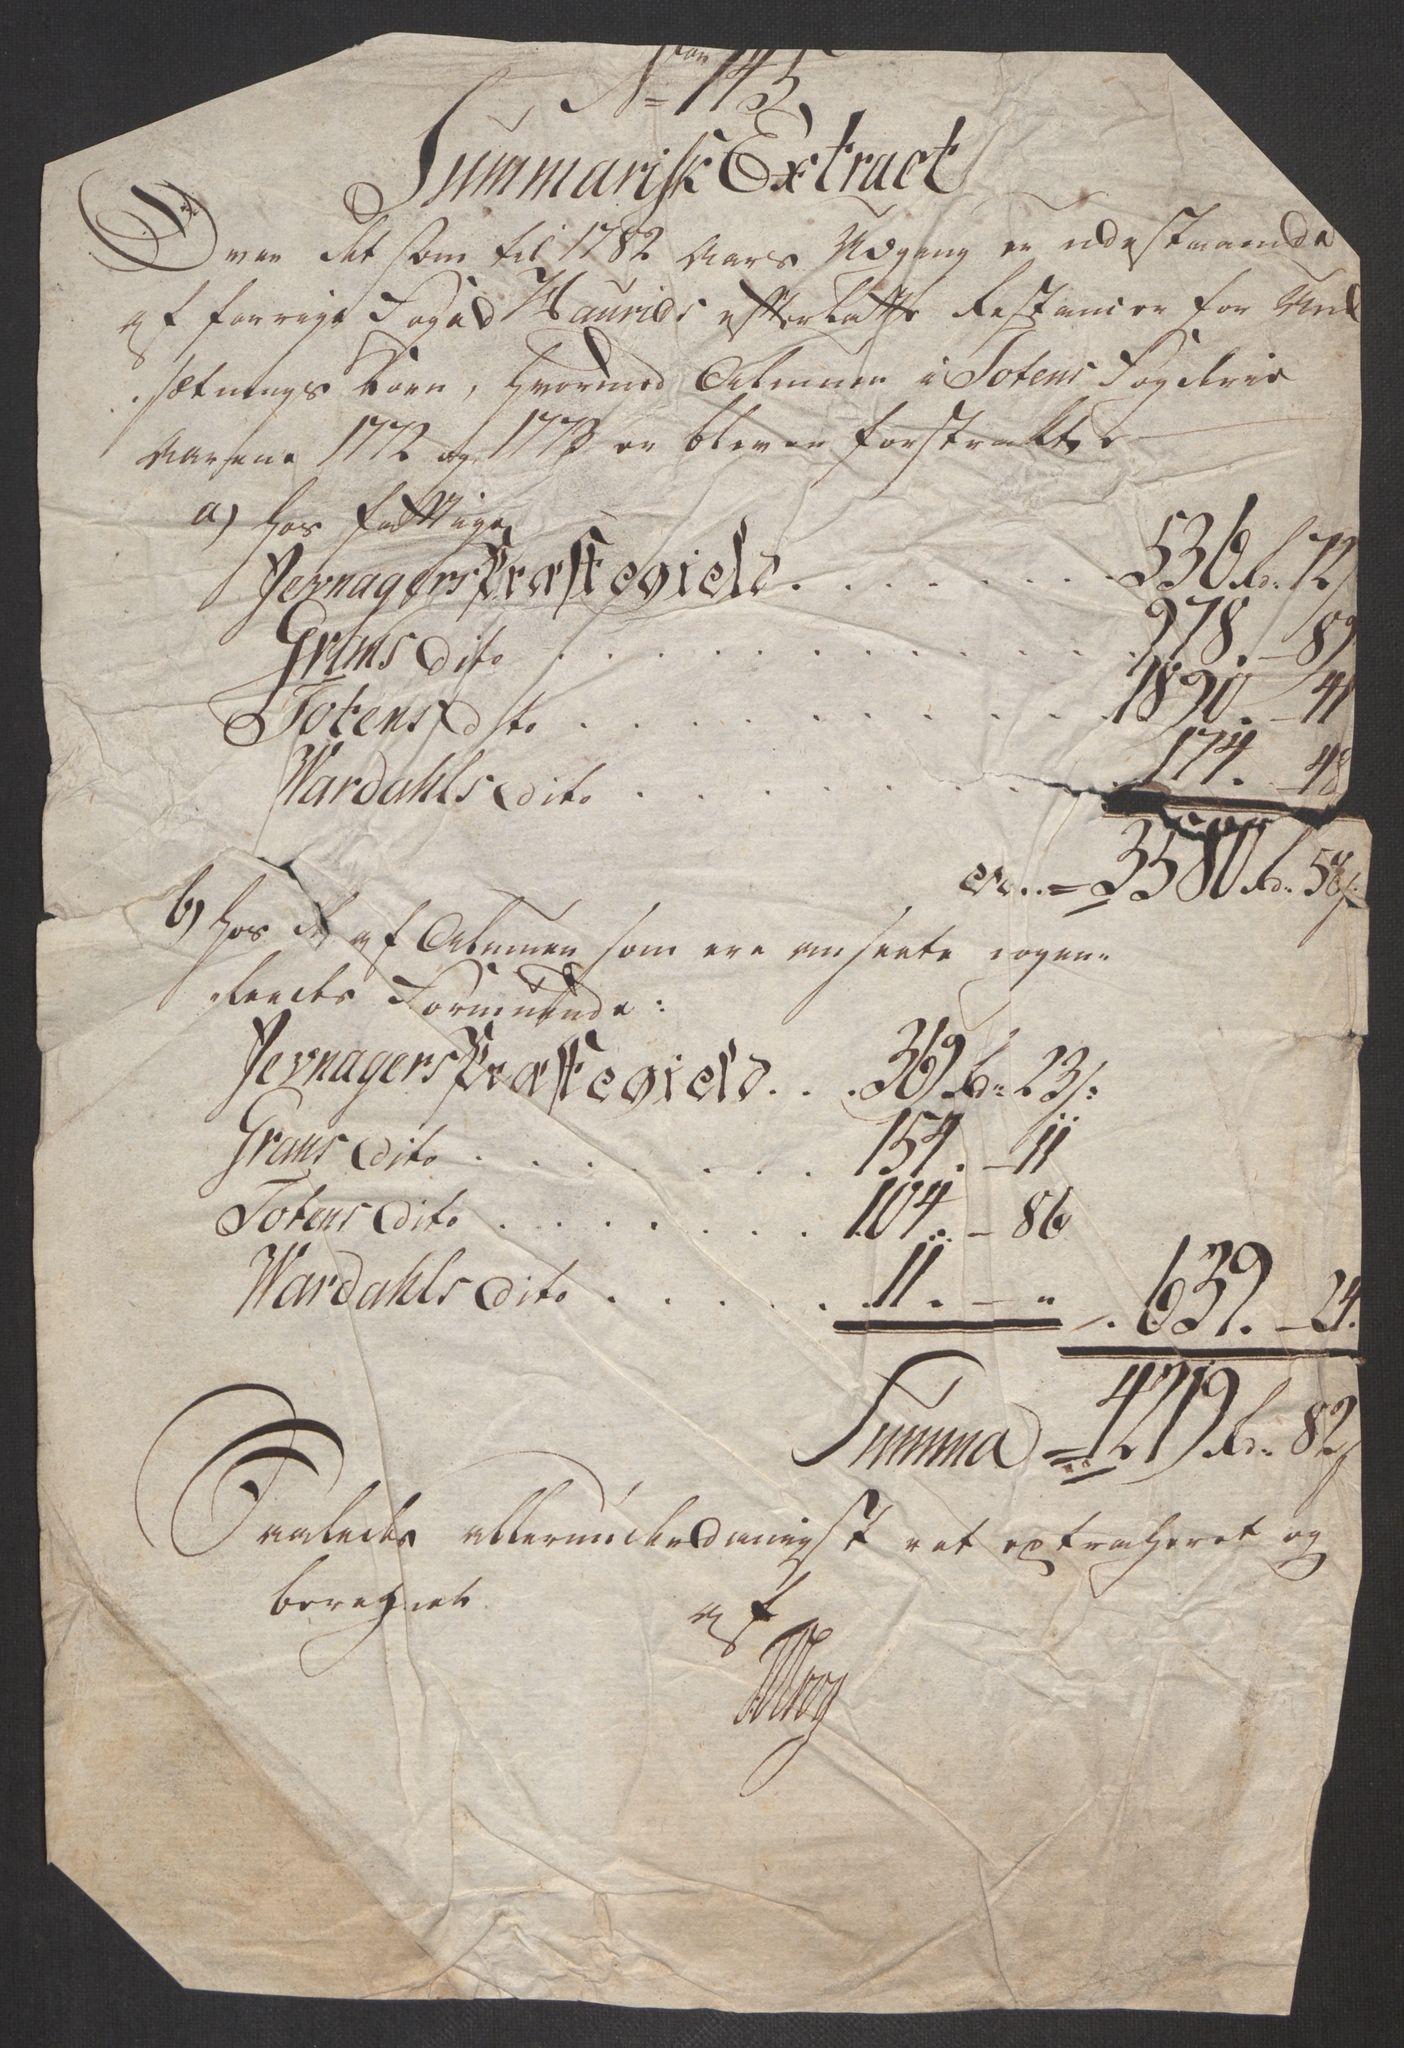 No 145
Summarisk Extract
Over det som til 1782 Aars Udgang er udestaaende
af forrige Foged Haurids efterladte Restancer for Und
sætnings Korn, hvormed Almuen i Totens Fogderie
Aarene 1772 og 1773 er bleven forstrakt
a) hos fattige
Jevnagers Præstegield . . . . . . . 536 rd: 72 s
Grans dito . . . . . . . . . . . 978. – 89
Totens dito . . . . . . . . . . . 1890. – 41
Wardahls dito . . . . . . . . . 174. – 48
er . . = 3580 rd: 58 s:
b) hos de af Almuen som ere anseete nogen-
ledes Formuende:
Jevnagers Præstegield . . . 369 rd: 23 s:
Grans dito . . . . . . . 154. – 11
Totens dito . . . . . . . 104. – 86
Wardahls dito . . . . . . 11. – " . 639. – 24.
Summa = 4219 rd: 82 s
Saaledes allerunderdanigst ret extraheret og
beregnet
af